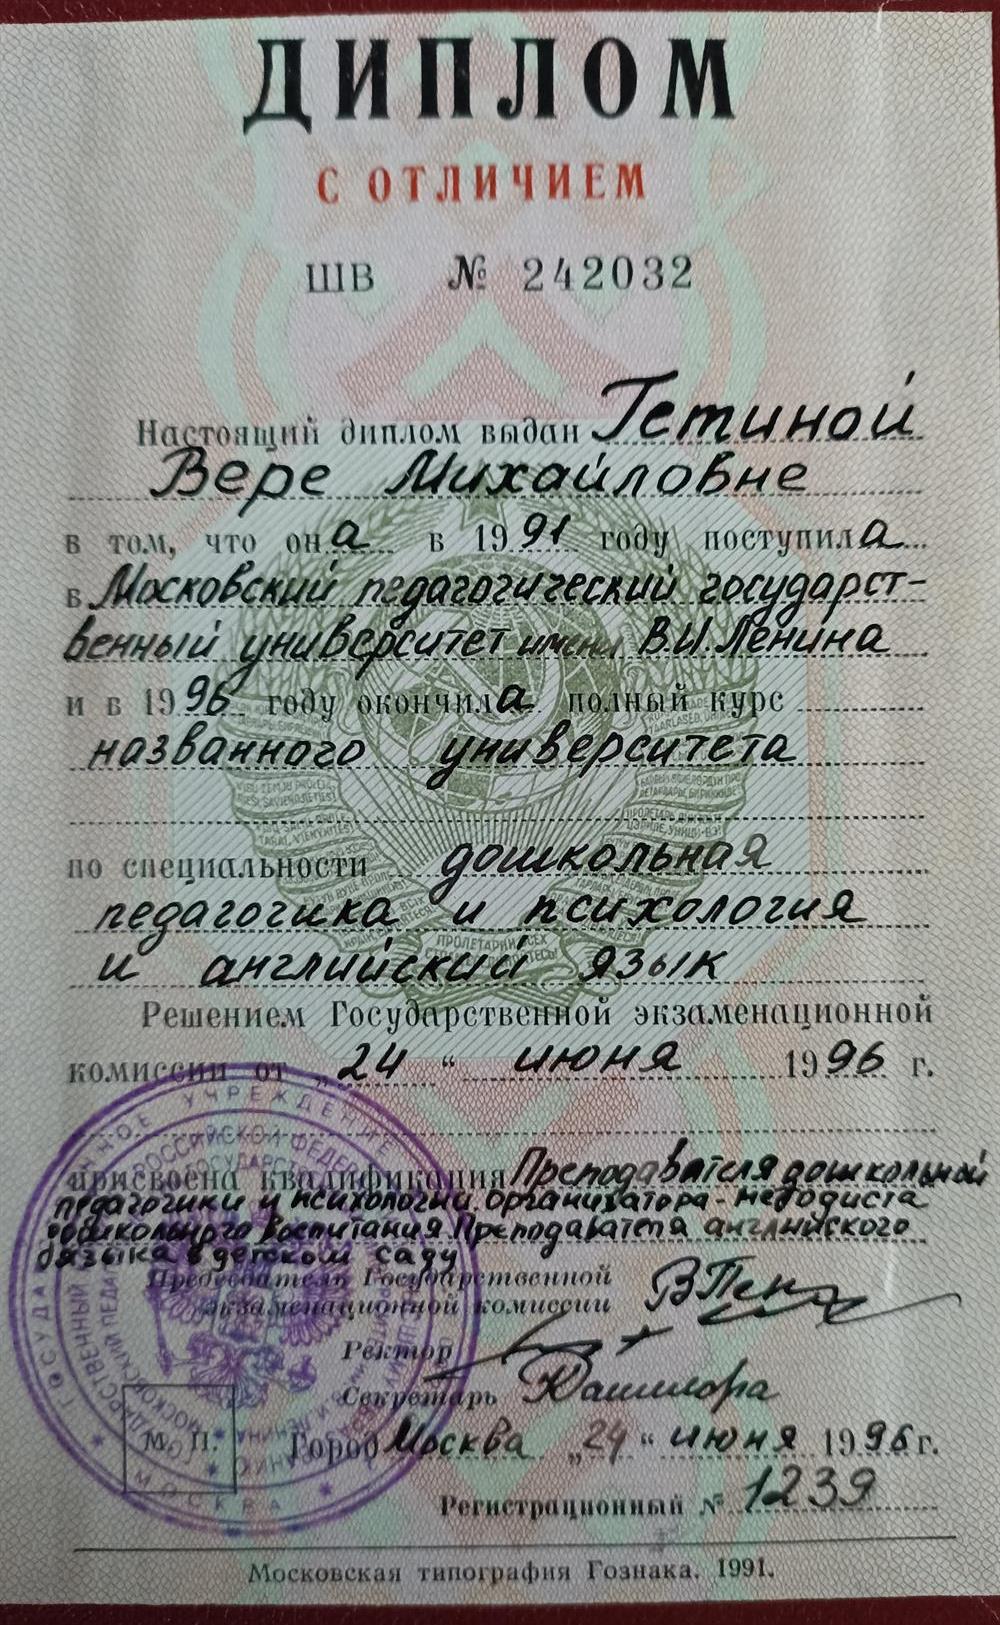 ДИПЛОМ
С ОТЛИЧИЕМ
ШВ № 242032
Настоящий диплом выдан Гетиной
Вере Михайловне
в том, что она в 1991 году поступила
в Московский педагогический государст-
венный университет имени В.И.Ленина
и в 1996 году окончила полный курс
названного университета
по специальности дошкольная
педагогика и психология
и английский язык
Решением Государственной экзаменационной
комиссии от „24“ июня 1996 г.
присвоена квалификация Преподавателя дошкольной
педагогики и психологии, организатора-методиста
дошкольного воспитания, Преподавателя английского
языка в детском саду
Председатель Государственной
экзаменационной комиссии
Ректор
Секретарь
М. П. Город Москва „24“ июня 1996 г.
Регистрационный № 1239
Московская типография Гознака. 1991.